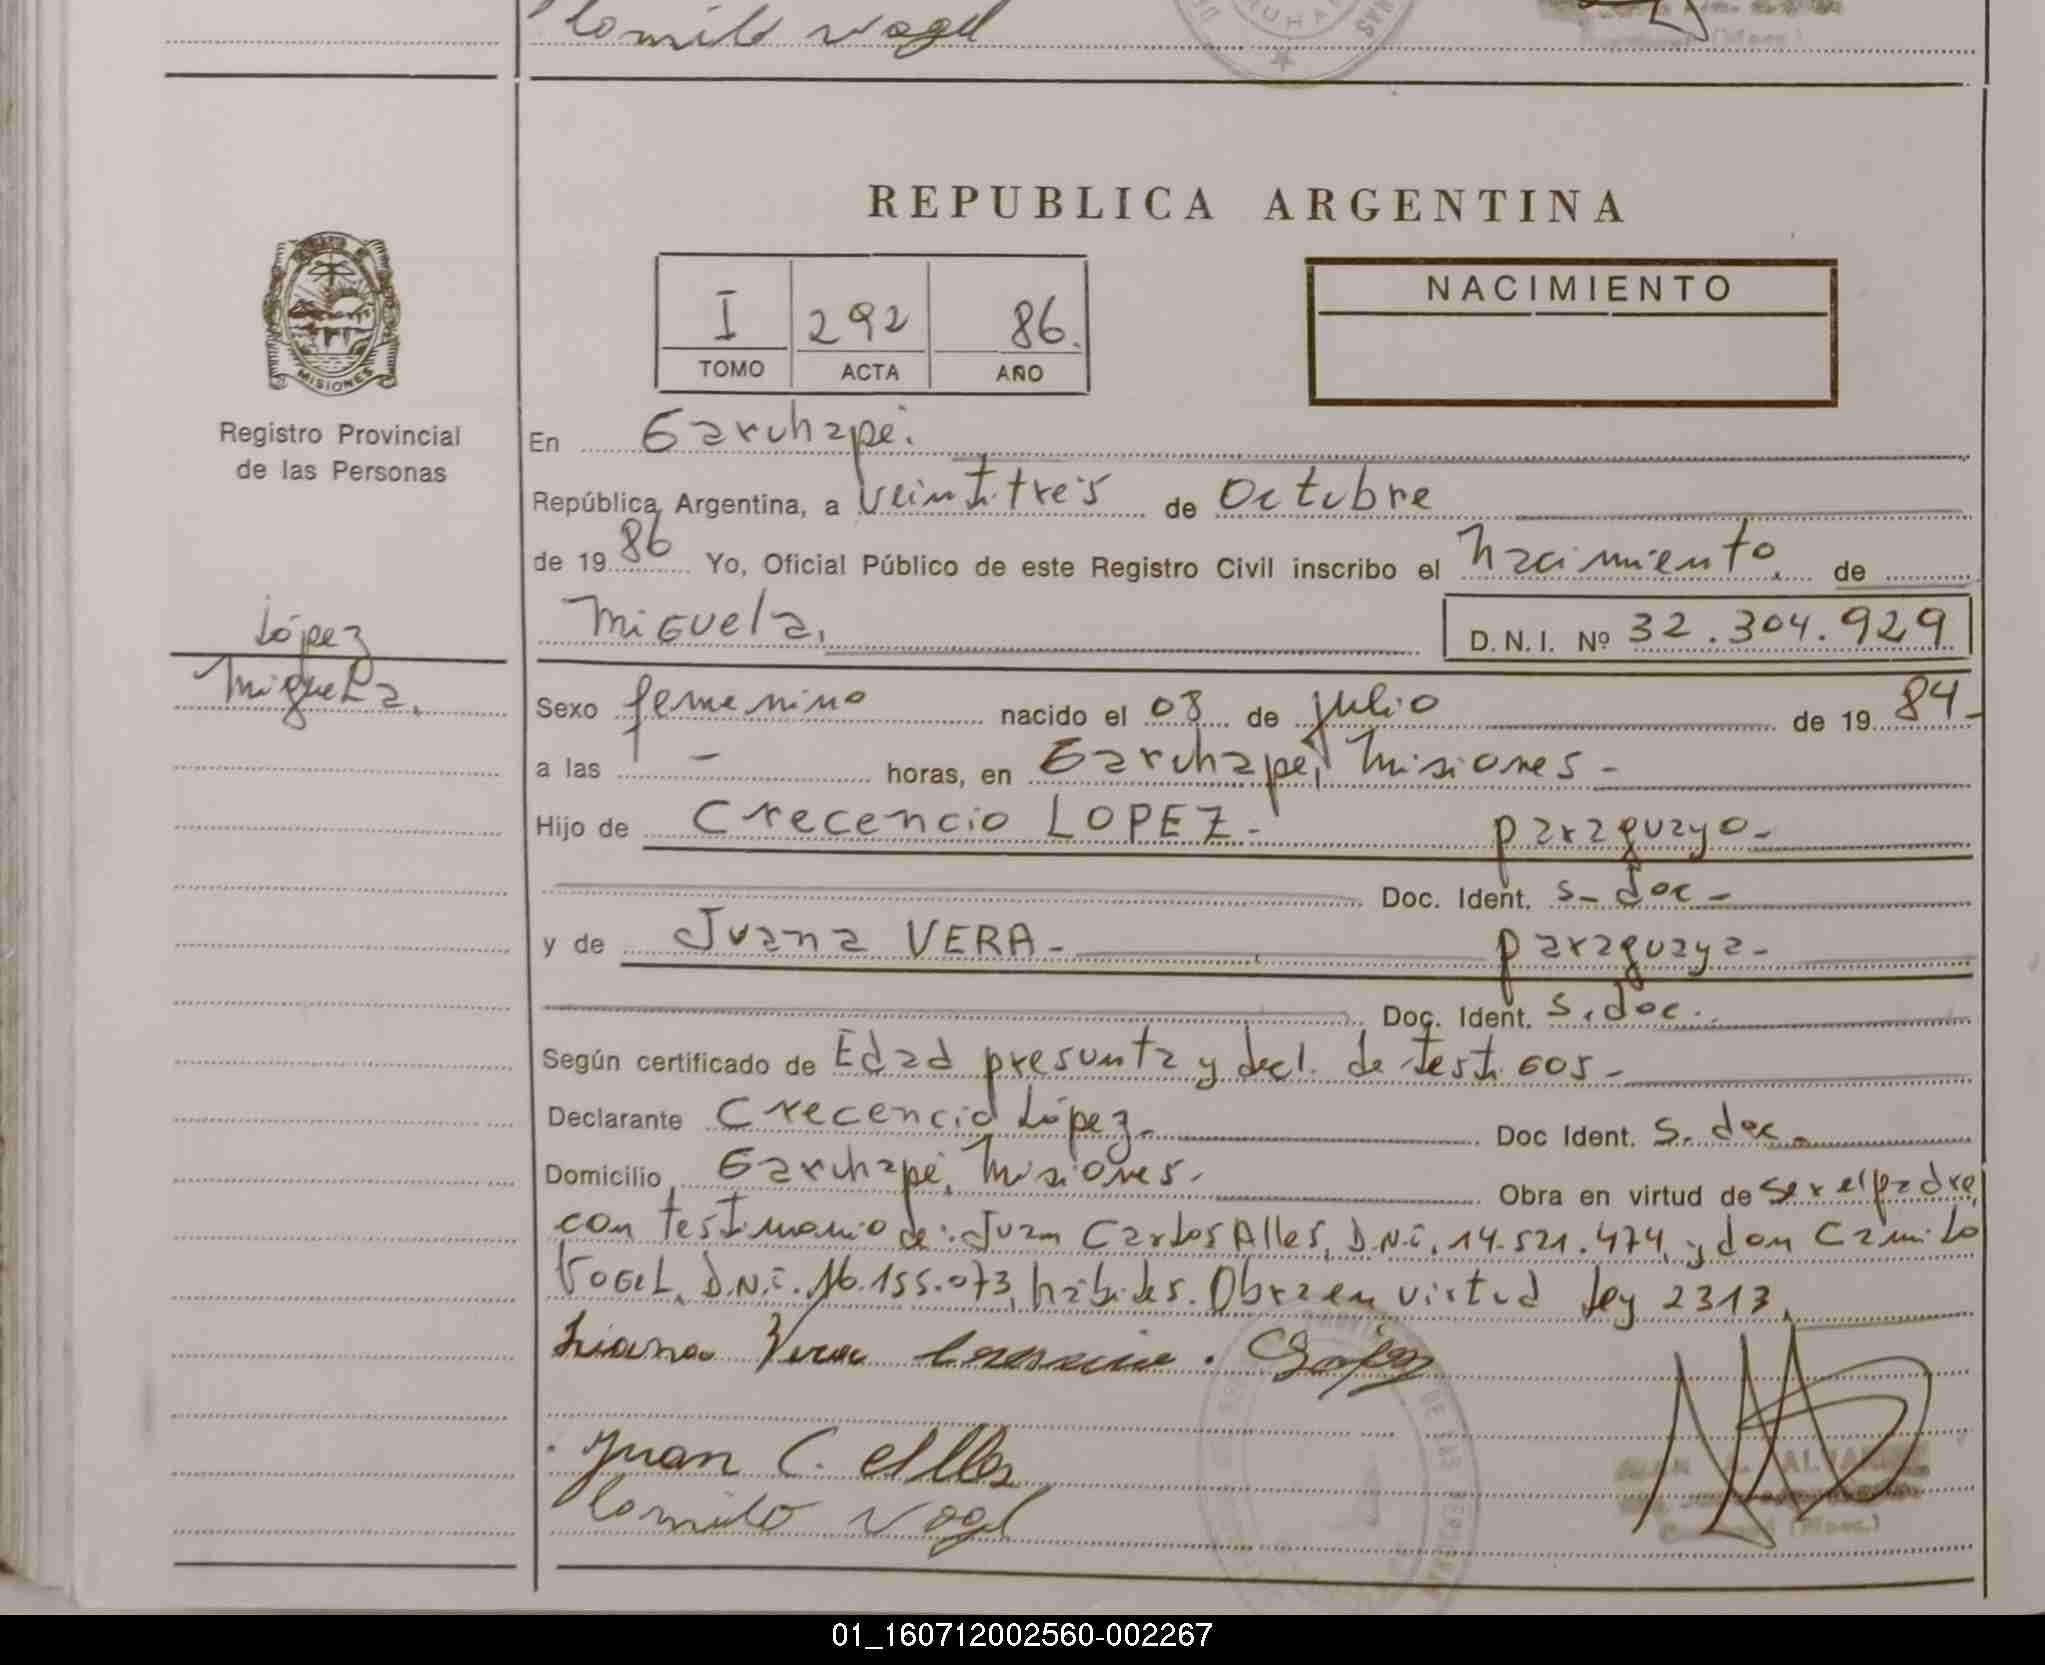 Camilo Vogel
REPUBLICA ARGENTINA
NACIMIENTO
I 292 86.
TOMO ACTA AÑO
MISIONES
Registro Provincial
de las Personas
En Garuhapé.
República Argentina, a Veintitrés de Octubre
de 19 86 Yo, Oficial Público de este Registro Civil inscribo el Nacimiento. de
Miguela. D.N.I. Nº 32.304.929
López
Miguela.
Sexo femenino nacido el 08 de julio de 19 84-
a las - horas, en Garuhapé, Misiones-
Hijo de Crecencio LOPEZ- paraguayo-
Doc. Ident. s-doc-
y de Juana VERA- paraguaya-
Doc. Ident. s.doc.
Según certificado de Edad presunta y decl. de testigos-
Declarante Crecencio López- Doc Ident. s. doc.
Domicilio Garuhapé, Misiones- Obra en virtud de ser el padre,
con testimonio de: Juan Carlos Alles, D.N.I. 14.521.474, y don Camilo
Vogel, D.N.I. 16.155.073, hábiles. Obra en virtud ley 2313.
Vera
Juan C. Alles
Camilo Vogel
01_160712002560-002267